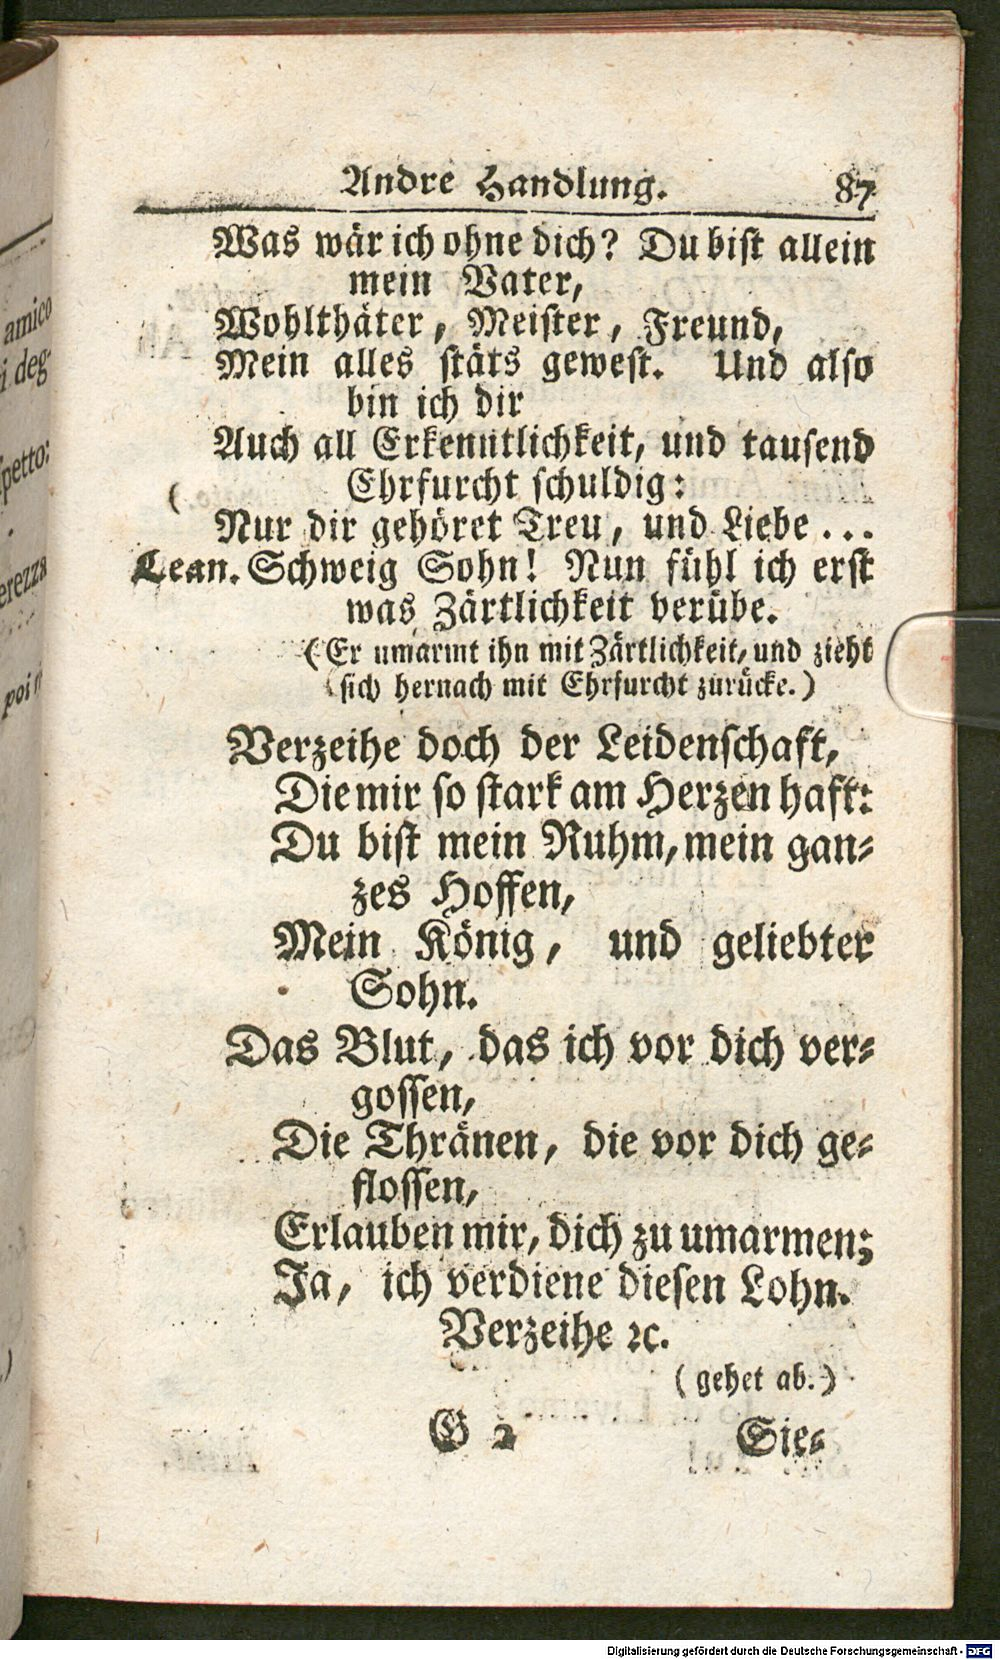 amico
i deg-
petto:
erezza
poi
Andre Handlung. 87
Was wär ich ohne dich? Du bist allein
mein Vater,
Wohlthäter, Meister, Freund,
Mein alles stäts gewest. Und also
bin ich dir
Auch all Erkenntlichkeit, und tausend
Ehrfurcht schuldig:
Nur dir gehöret Treu, und Liebe...
Lean. Schweig Sohn! Nun fühl ich erst
was Zärtlichkeit verübe.
(Er umarmt ihn mit Zärtlichkeit, und zieht
sich hernach mit Ehrfurcht zurücke.)
Verzeihe doch der Leidenschaft,
Die mir so stark am Herzen haft:
Du bist mein Ruhm, mein gan-
zes Hoffen,
Mein König, und geliebter
Sohn.
Das Blut, das ich vor dich ver-
gossen,
Die Thränen, die vor dich ge-
flossen,
Erlauben mir, dich zu umarmen;
Ja, ich verdiene diesen Lohn.
Verzeihe ꝛc.
(gehet ab.)
G 2 Sie-
Digitalisierung gefördert durch die Deutsche Forschungsgemeinschaft - DFG